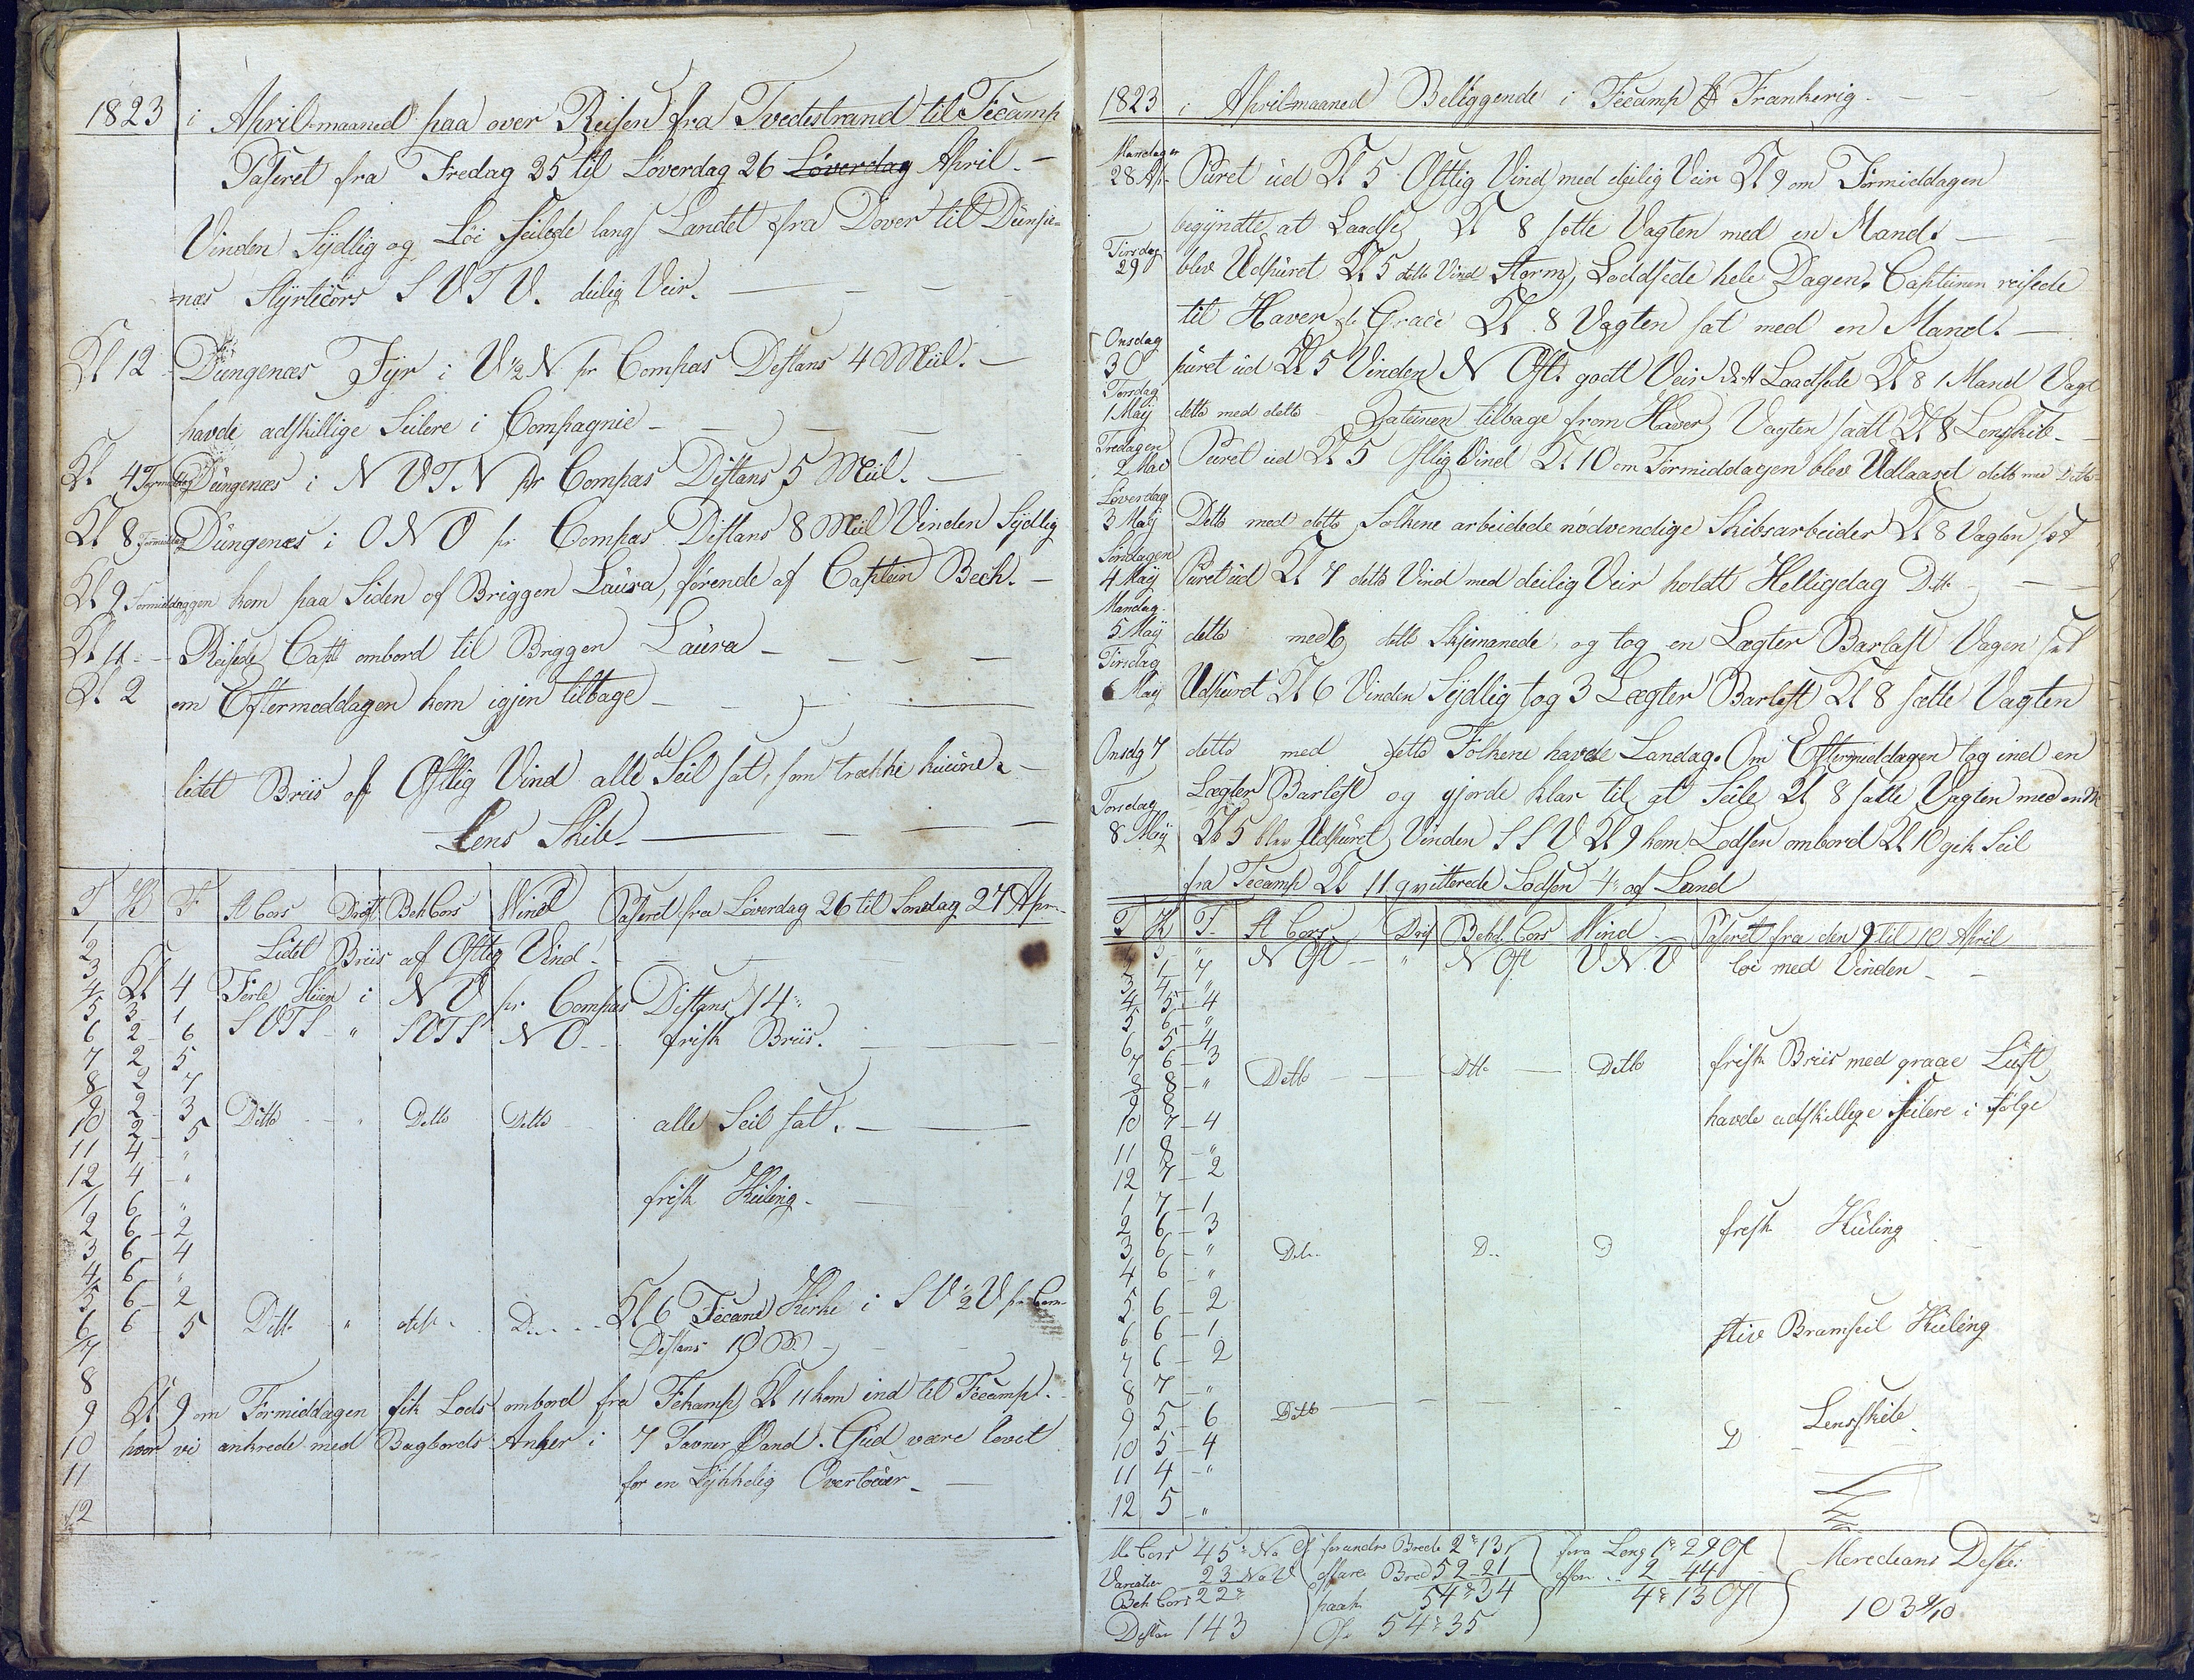 1823 i April=maaned paa over Reisen fra Tvedestrand til Fécamp
Paseret fra Fredag 25 til Löverdag 26 Löverdag April. –
Vinden Sÿdlig og Löi Seilede langs Landet fra Dover til Dünse=
=næs Stÿrtecors S V T V. deilig Veir. –
Kl 12 Düngenæs Fÿr i V ½ N pr Compas Destans 4 Miil. –
havde adskillige Seilere i Compagnie –
Kl 4 Düngenæs i N V T N pr Compas Distans 5 Miil. –
Kl 8 Formiddag Düngenæs i O N O pr Compas Distans 8 Miil Vinden Sÿdlig
Kl 9 Formiddaggen kom paa Siden of Briggen Laüra, förende af Captein Bech. –
Kl 11 – Reisede Capt ombord til Briggen Laüra –
Kl 2 om Eftermeddagen kom igjen tilbage –
lidet Briis af Ostlig Vind alle de Seil sat, som trække küüne. –
Lens Skib –
T K F St Cors Drift Beh Cors Wind Paseret fra Löverdag 26 til Sondag 27 Apr.
1
2 Lidet Briis af Ostlig Vind –
3
4 Kl 4 Ferle Hüen i N V pr Compas Distans 14
5 3 – 1 S V T S " S V T S N O frisk Briis.
6 2 – 6
7 2 5
8 2 – 7
9 2 – 3 Ditto " Detto Detto alle Seil sat. –
10 2 – 5
11 4 – "
12 4 – " frisk Küling –
1 6 – "
2 6 – 2
3 6 – 4
4 6 – "
5 6 – 2
6 6 5 Ditt " Kl 6 Fecand Kirke i S V ½ V pr Com
7 Destans 10 M
8
9 Kl 9 om Formiddagen fik Lods ombord fra Fekamp Kl 11 kom ind til Fécamp.
10 hvor vi ankrede med Bagbords Anker i 7 Favner Vand. Gud være lovet
11 for en Lÿkkelig Overtour –
12
1823 i April=maaned Beliggende i Fécamp Frankerig –
Mandagen
28 Ap. Püret üd Kl 5 Ostlig Vind med deilig Veir Kl 9 om Formiddagen
begÿndte at Laadse Kl 8 sotte Vagten med en Mand. –
Tirsdag
29 blev Udpüret Kl 5 detto Vind Storm, Loddsede hele Dagen. Capteinen reisede
til Haver de Grace Kl 8 Vagten sat med en Mand. –
Onsdag
30 püret üd Kl 5 Vinden N Ost. godt Veir Laadsede Kl 8 1 Mand Vagt
Torsdag
1 Maÿ detto med detto – Cateinen tilbage from Haver, Vagten sadt Kl 8 Lenskib –
Fredagen
2 Mai Püret üd Kl 5 Ostlig Vind Kl 10 om Formiddagen blev Udlaased detto med Ditto
Löverdag
3 Maÿ Detto med detto Folkene arbeidede nödvendige Skibsarbeider Kl 8 Vagten sat
Söndagen
4 Maÿ Püret üd Kl 7 detto Vind med deilig Veir holdt Helligdag D.tt.
Mandag
5 Maÿ detto med detto Skjemanede, og tog en Lægter Barlast Vagen sat
Tirsdag
6 Maÿ Udpüret Kl 6 Vinden Sÿdlig tog 3 Lægter Barlast Kl 8 sætte Vagten
Onsdg 7 detto med detto Folkene havde Landag. Om Eftermiddagen tog ind en
Lægter Barlast og gjorde klar til at Seile Kl 8 satte Vagten med en M
Torsdag
8 Maÿ Kl 5 blev Udpüret, Vinden S S V Kl 9 kom Lodsen ombord Kl 10 gik Seil
fra Fecamp Kl 11 qvitterede Lodsen 4 af Land
T K F. St Cors. Drif Behd. Cors Wind – Paseret fra den 9 til 10 April
5 " N Ost – " N Ost V N V löi med Vinden –
4 – 7
3 4 – "
4 5 – 4
5 6 – "
6 5 – 4
7 6 – 3 frisk Briis med graae Lüft,
8 8 – " Detto – Dtt – Ditto
9 8 havde adskillige Seilere i Fölge
10 7 – 4
11 8 – "
12 7 – 2
1 7 – 1
2 6 – 3 fresk Küling
3 6 – " Det.. D.. D
4 6 – "
5 6 – 2
6 6 – 1 stive Bramseil Küling
7 6 – 2
8 7 – "
9 5 – 6 Ditto – D Lensskibe
10 5 – 4
11 4 – "
12 5 – "
Cors 45° No Ost forandre Brede 2° 13 fora Leng 1° 29 Ost Meredians Desta:
Variation 23 No V affare Bred 52 – 21 affar .. 2 – 44
Beh Cors 22° paak 54° 34 4° 13 Ost 103 9/10
Destan 143 Ob 54° 35